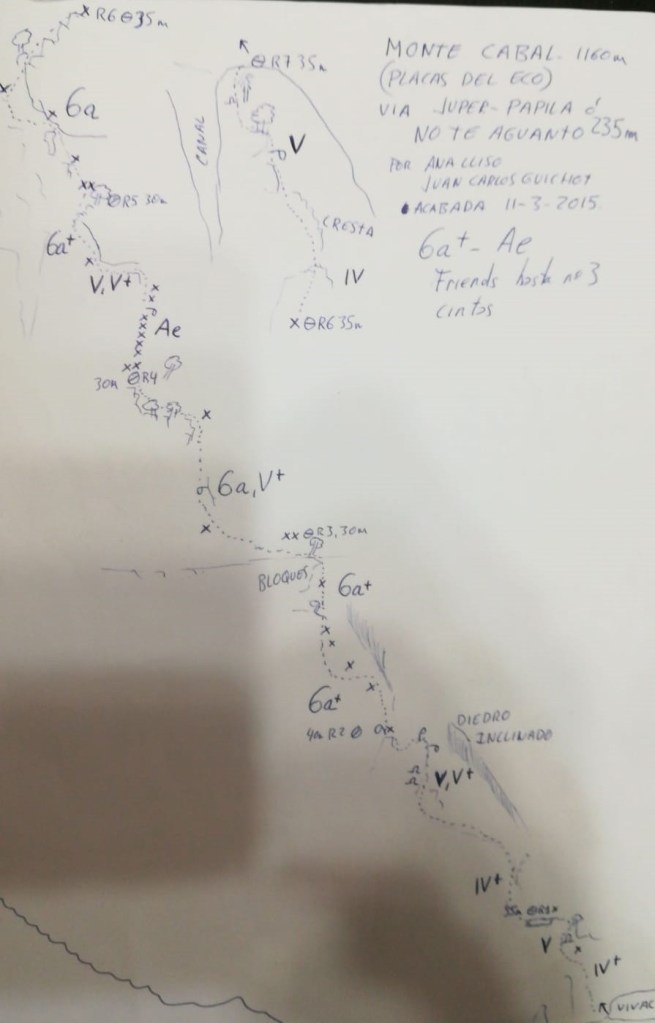 MONTE CABAL. 1160m
(PLACAS DEL ECO)
VIA SUPER-PAPILA ó
NO TE AGUANTO 235m
POR ANA LLISO
JUAN CARLOS GUICHOT
• ACABADA 11-3-2015
6a+ - Ae
Friends hasta nº 3
cintas
R6 35m
6a
R5 30m
6a+
V, V+
Ae
30m R4
6a, V+
R7 35m
CANAL
V
CRESTA
IV
R6 35m
R3, 30m
BLOQUES
6a+
6a+
R2
DIEDRO
INCLINADO
V, V+
IV+
35m R1
V
IV+
VIVAC